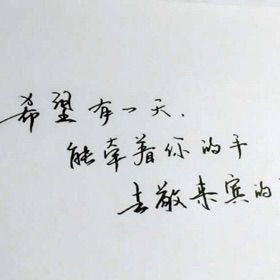 希望有一天.
能牵着你的手
去敬来宾的